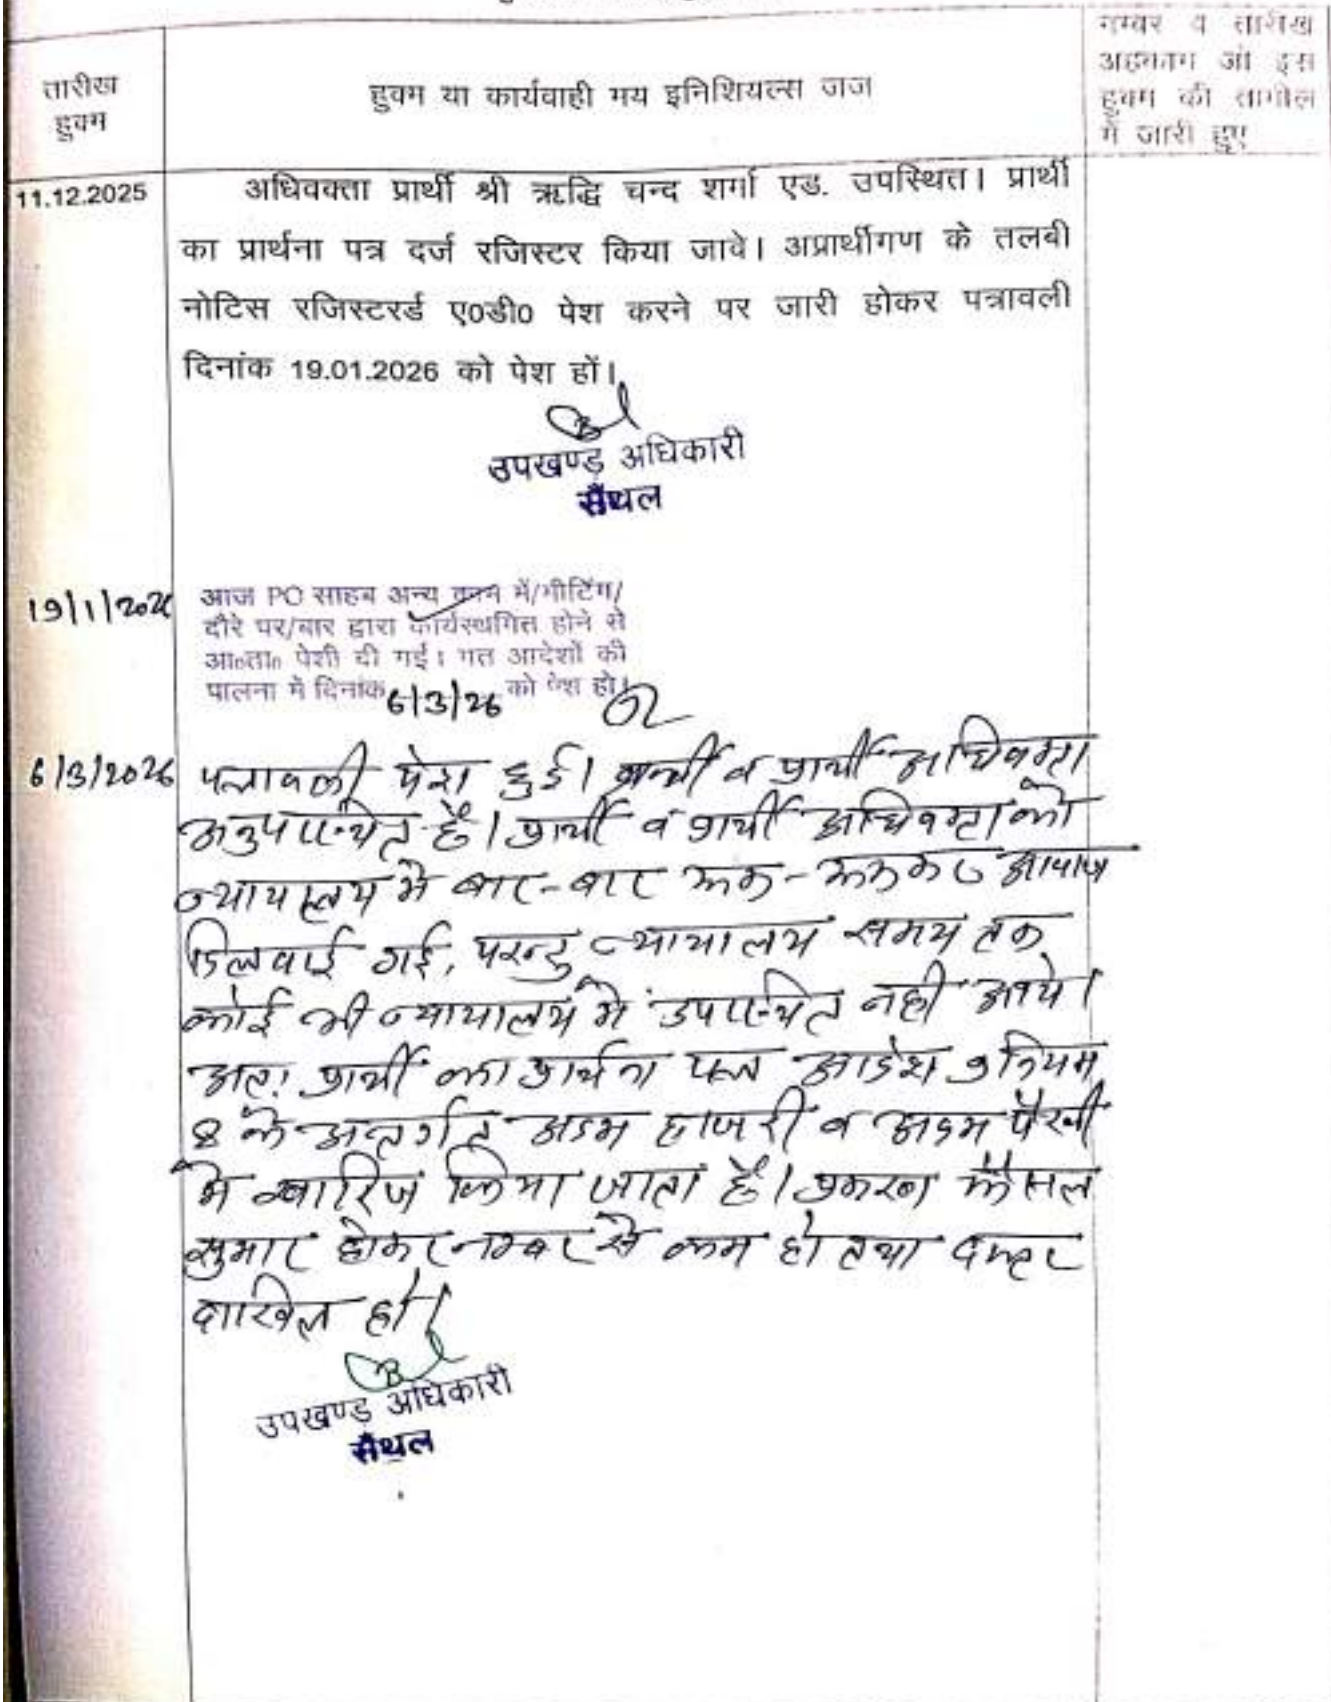 तारीख
हुक्म
हुक्म या कार्यवाही मय इनिशियल्स जज
नम्बर व तारीख
अहकाम जो इस
हुक्म की तामील
में जारी हुए
11.12.2025
अधिवक्ता प्रार्थी श्री ऋद्धि चन्द शर्मा एड. उपस्थित। प्रार्थी
का प्रार्थना पत्र दर्ज रजिस्टर किया जावे। अप्रार्थीगण के तलबी
नोटिस रजिस्टरर्ड ए0डी0 पेश करने पर जारी होकर पत्रावली
दिनांक 19.01.2026 को पेश हों।
उपखण्ड अधिकारी
सैंथल
19/1/2026
आज PO साहब अन्य काम में/मीटिंग/
दौरे पर/बार द्वारा कार्यस्थगित होने से
आ0ता0 पेशी दी गई। गत आदेशों की
पालना में दिनांक 6/3/26 को पेश हो।
6/3/2026
पत्रावली पेश हुई। प्रार्थी व प्रार्थी अधिवक्ता
अनुपस्थित है। प्रार्थी व प्रार्थी अधिवक्ता को
न्यायालय में बार-बार आवाज
दिलवाई गई, परन्तु न्यायालय समय तक
कोई भी न्यायालय में उपस्थित नही आये।
अतः प्रार्थी का प्रार्थना पत्र आदेश 9 नियम
8 के अन्तर्गत अदम हाजरी व अदम पैरवी
में खारिज किया जाता है। प्रकरण फैसल
सुमार होकर नम्बर से कम हो तथा दफ्तर
दाखिल हो।
उपखण्ड अधिकारी
सैंथल